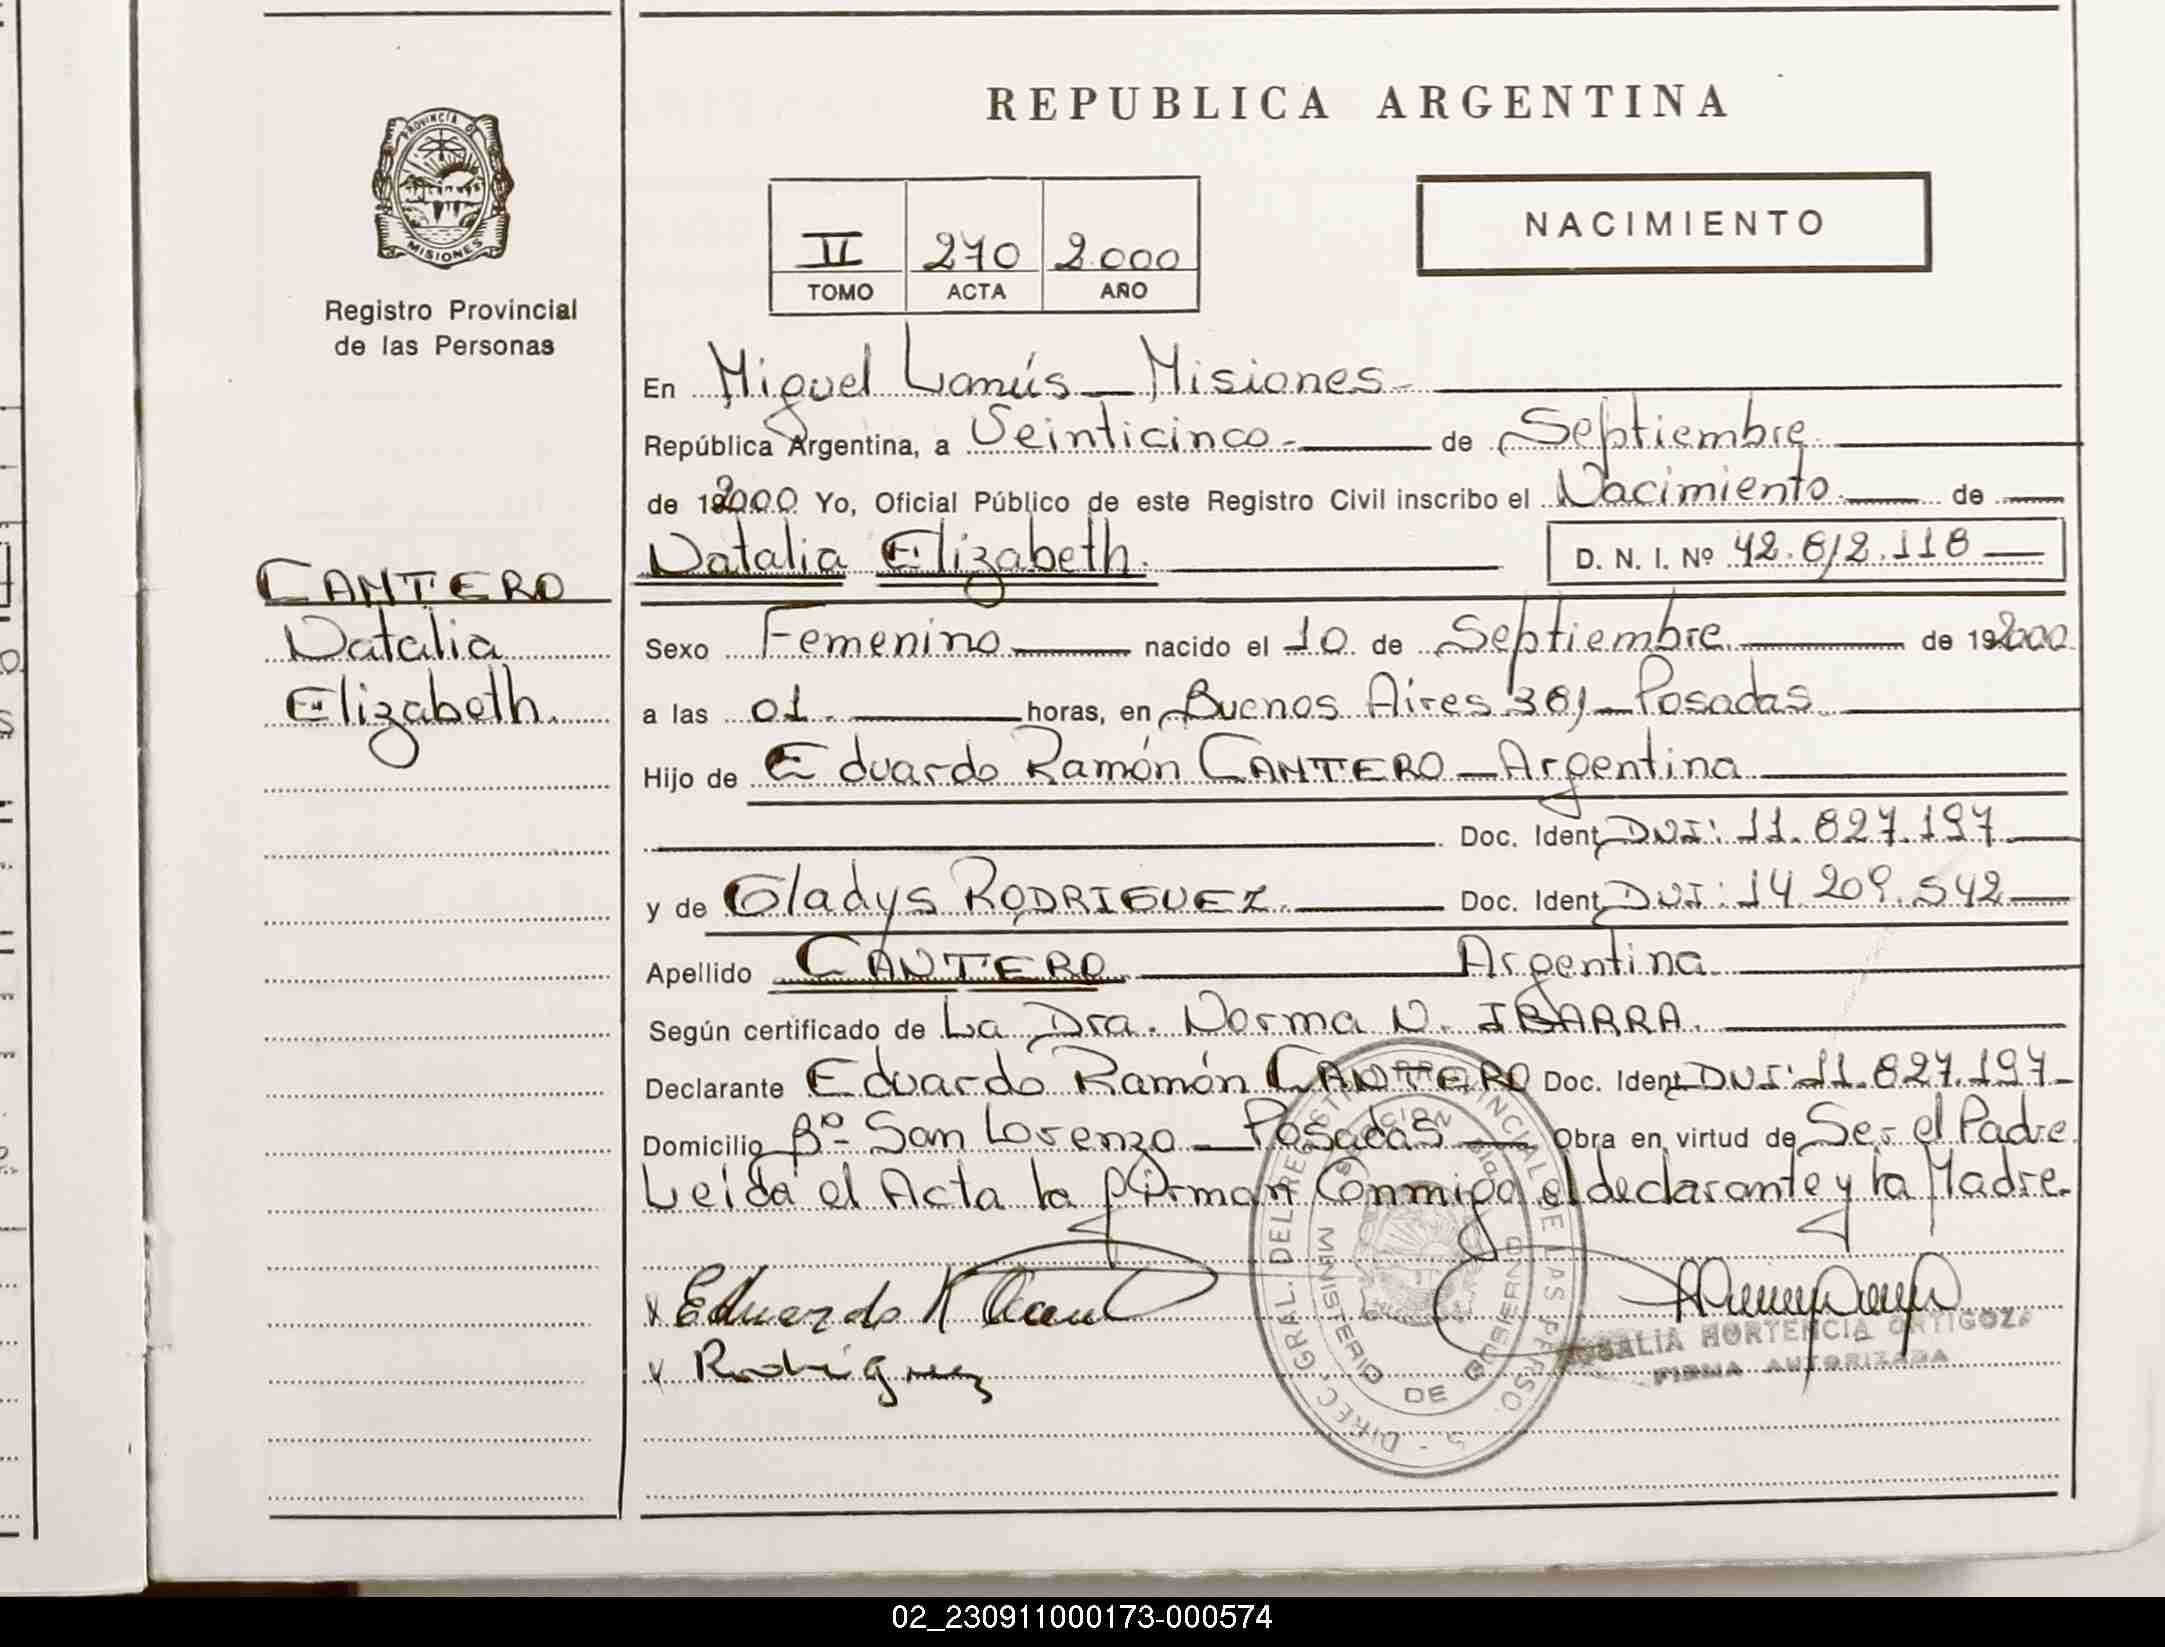 REPUBLICA ARGENTINA
PROVINCIA DE
MISIONES
Registro Provincial
de las Personas
II 270 2.000
TOMO ACTA AÑO
NACIMIENTO
En Miguel Lanús - Misiones
República Argentina, a Veinticinco - de Septiembre
de 2000 Yo, Oficial Público de este Registro Civil inscribo el Nacimiento de
Natalia Elizabeth. D. N. I. Nº 42.812.118
CANTERO
Natalia
Elizabeth.
Sexo Femenino nacido el 10 de Septiembre de 192000
a las 01. horas, en Buenos Aires 381 - Posadas
Hijo de Eduardo Ramón CANTERO - Argentina
Doc. Ident. DNI: 11.827.197
y de Gladys RODRIGUEZ. Doc. Ident. DNI: 14.209.542
Apellido CANTERO Argentina
Según certificado de La Dra. Norma N. IBARRA.
Declarante Eduardo Ramón CANTERO Doc. Ident. DNI: 11.827.197
Domicilio Bº San Lorenzo - Posadas Obra en virtud de Ser el Padre
Leida el Acta la firman Conmigo el declarante y la Madre.
x Eduardo R Cant
x Rodriguez
DIREC. GRAL. DEL REGISTRO PROVINCIAL DE LAS PERSO.
MINISTERIO DE GOBIERNO
ROSALIA HORTENCIA ORTIGOZA
FIRMA AUTORIZADA
02_230911000173-000574